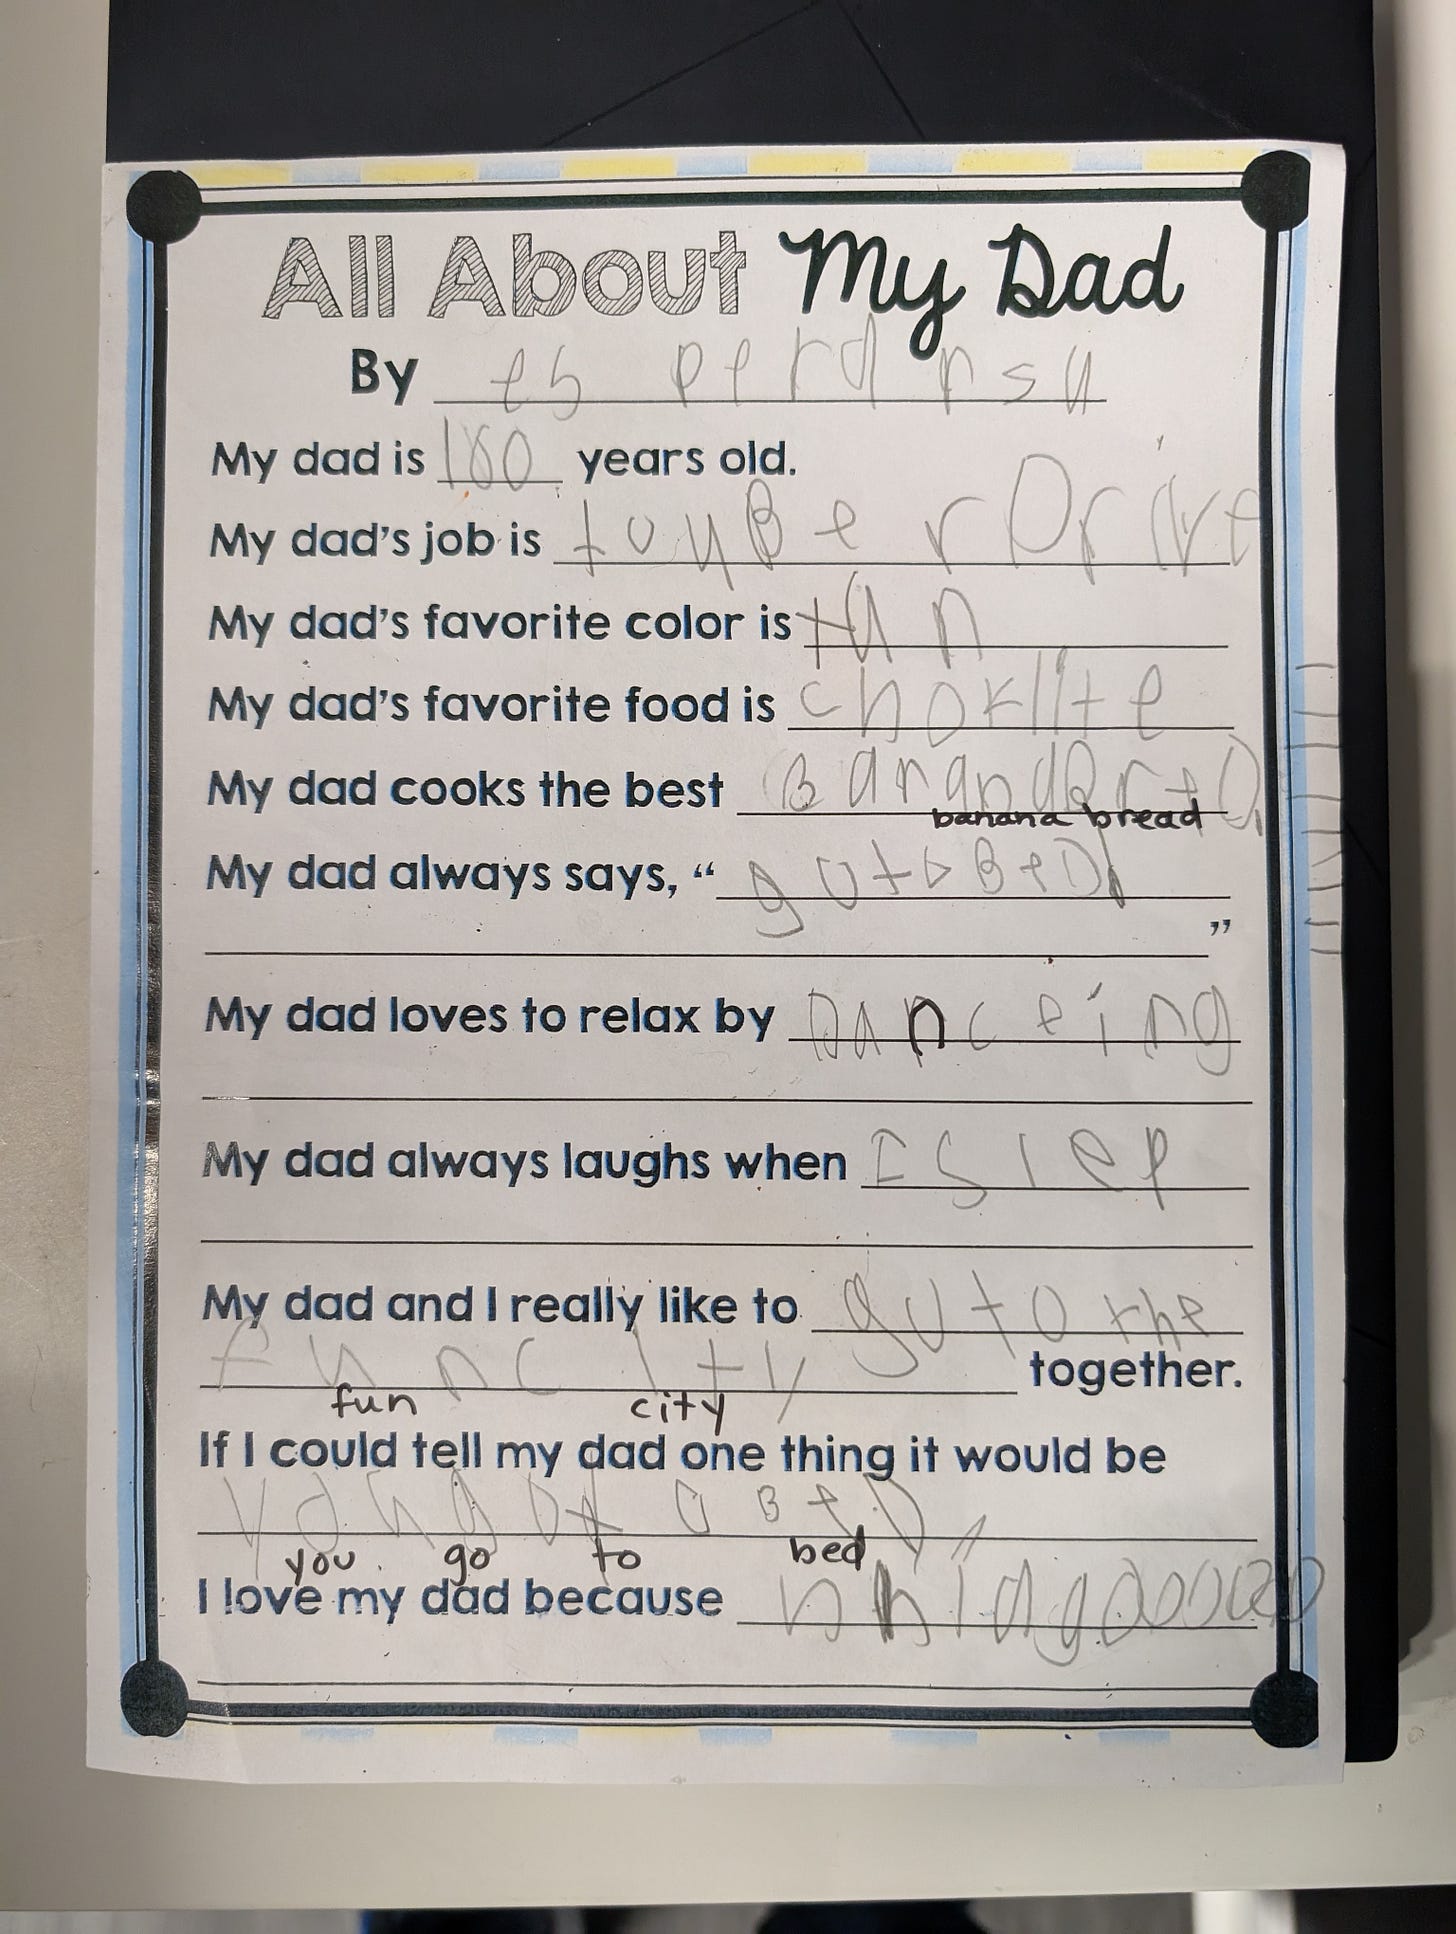 All About My Dad
By es perdnsu
My dad is 180 years old.
My dad's job is touyBer Drive
My dad's favorite color is tan
My dad's favorite food is choklite
My dad cooks the best
banana bread
My dad always says, “gutoBeD
”
My dad loves to relax by Danceing
My dad always laughs when I slep
My dad and I really like to gu to the
funcity together.
fun city
If I could tell my dad one thing it would be
you go to bed
I love my dad because